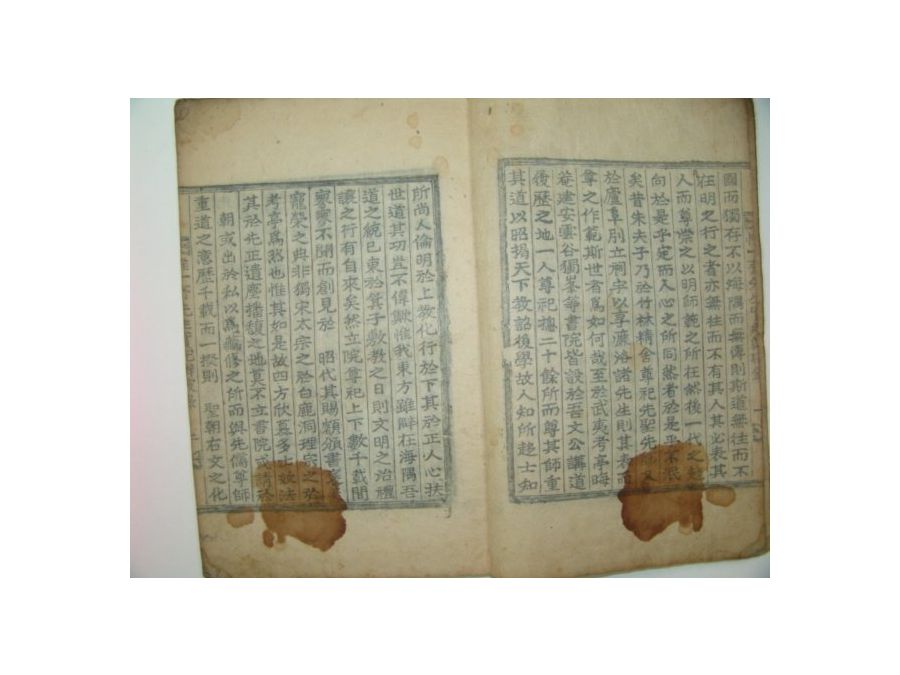 固而獨存不以海隅而無傳則斯道無往而不
在明之行之者亦無往而不有其人其必表其
人而尊崇之以明師範之所在然後一代之趍
向於是乎定而人心之所同然者於是乎不泯
矣昔朱夫子乃於竹林精舍尊祀先聖先師
於廬阜別立祠宇以享濂洛諸先生則其表而
尊之作範斯世者爲如何哉至於武夷考亭晦
菴建安雲谷獨峯等書院皆設於吾文公講道
履歷之地一人尊祀摠二十餘所而尊其師重
其道以昭揭天下敎詔後學故人知所趍士知
所尚人倫明於上敎化行於下其於正人心扶
世道其功豈不偉歟惟我東方雖辟在海隅吾
道之統已東於箕子敷敎之日則文明之治禮
讓之行有自來矣然立院尊祀上下數千載間
寥寥不聞而創見於 昭代其賜額頒書
寵榮之典非獨宋太宗之於白鹿洞理宗之於
考亭爲然也惟其如是故四方欣慕多士效法
其於先正遺塵播馥之地莫不立書院或請於
朝或出於私以爲藏修之所而與先儒尊師
重道之意歷千載而一揆則 聖朝右文之化